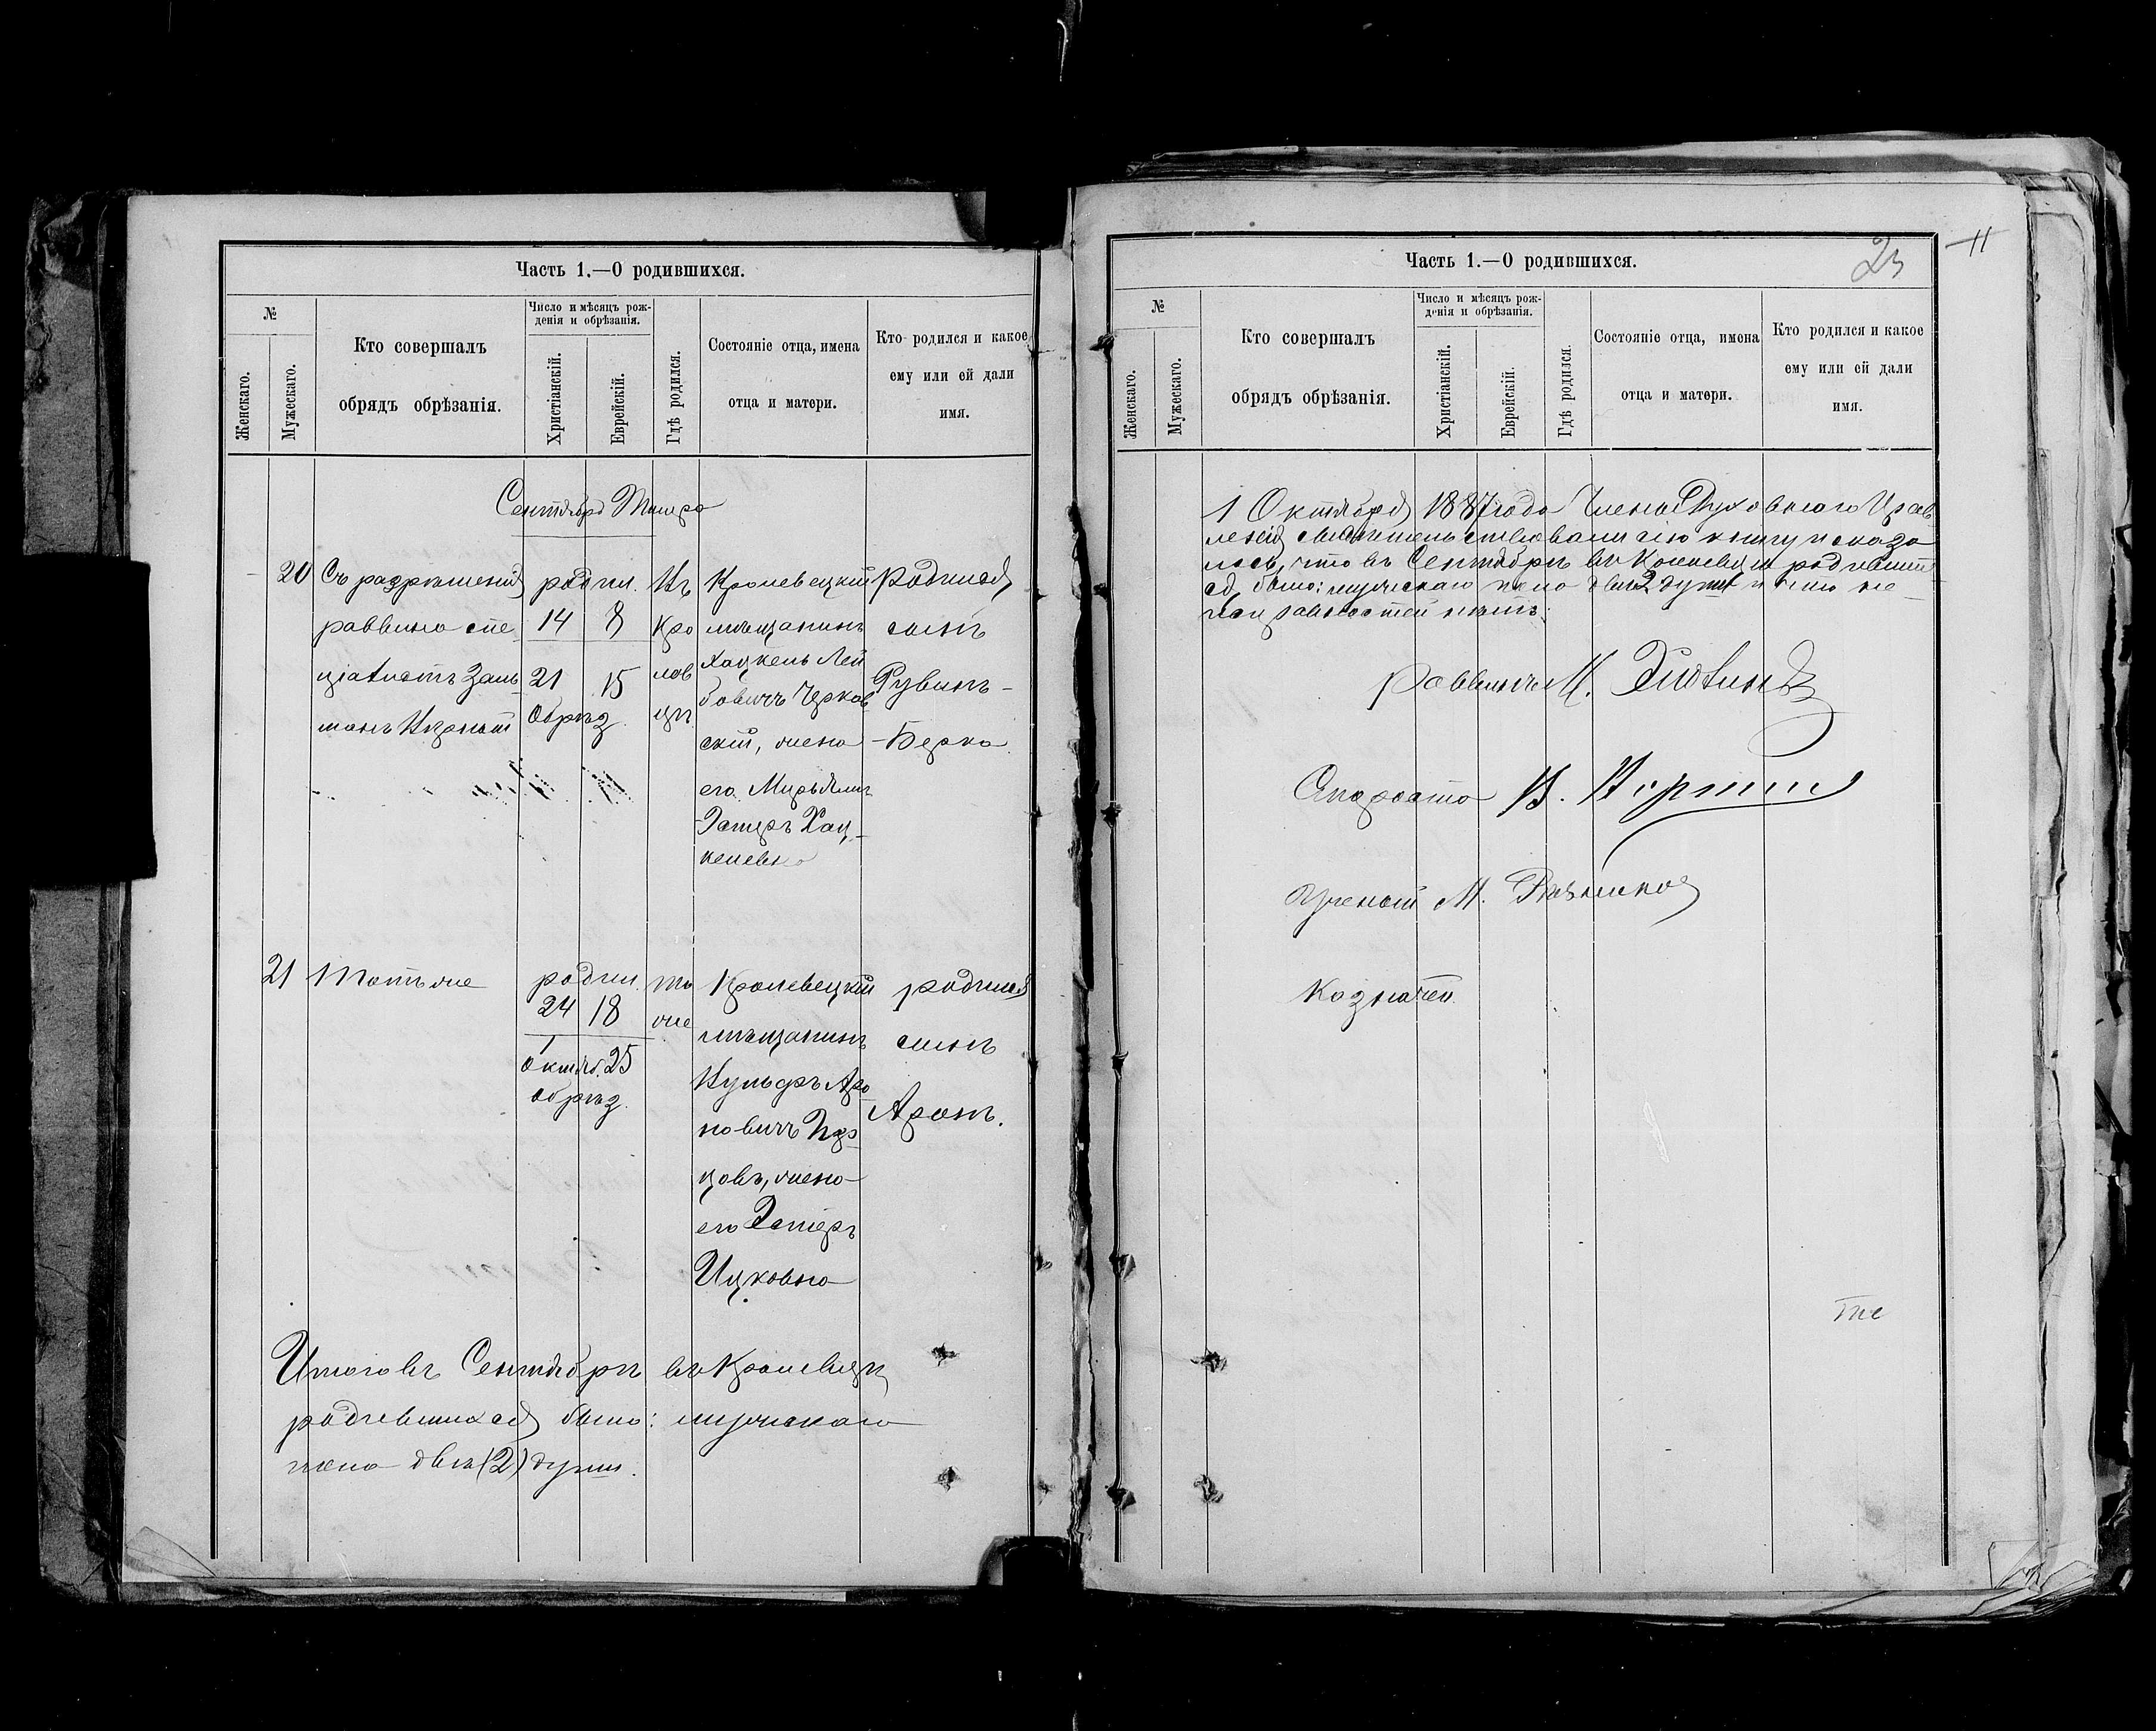 Часть 1.—О родившихся.
№
Женскаго.
Мужескаго.
Кто совершалъ
обрядъ обрѣзанія.
Число и мѣсяцъ рож-
денія и обрѣзанія.
Христіанскій.
Еврейскій.
Гдѣ родился.
Состояніе отца, имена
отца и матери.
Кто родился и какое
ему или ей дали
имя.
Сентябрь Тишра
20
Съ разрѣшенія
раввина спе
ціалистъ Заль
манъ
родил.
14 8
21 15
Обрѣз.
Въ
Кро
лев
цѣ
Кролевецкій
мѣщанинъ
Хацкель Лей
бовичъ Черков
скій, жена
его
Эстеръ Хац-
келевна
Родился
сынъ
Рувинъ-
-Берка
21
Тотъ же
родил.
24 18
1
Октяб. 25
обрѣз.
Та
же
Кролевецкій
мѣщанинъ
Аро
новичъ
жена
его Эстеръ
Ицковна
родился
сынъ
Аронъ.
Итого въ Сентябрѣ въ Кролевцѣ
родившихся было: мужскаго
пола двѣ (2) души.
Часть 1.—О родившихся.
23
11
№
Женскаго.
Мужескаго.
Кто совершалъ
обрядъ обрѣзанія.
Число и мѣсяцъ рож-
денія и обрѣзанія.
Христіанскій.
Еврейскій.
Гдѣ родился.
Состояніе отца, имена
отца и матери.
Кто родился и какое
ему или ей дали
имя.
1 Октября 1887 года Члены Духовнаго Прав
ленія свидѣтельствовали сію книгу и оказа
лось, что въ Сентябрѣ въ Кролевцѣ родивших
ся было: мужскаго пола двѣ 2 души и что не
исправностей нѣтъ:
Раввинъ М.
Староста
Ученый М.
Казначей